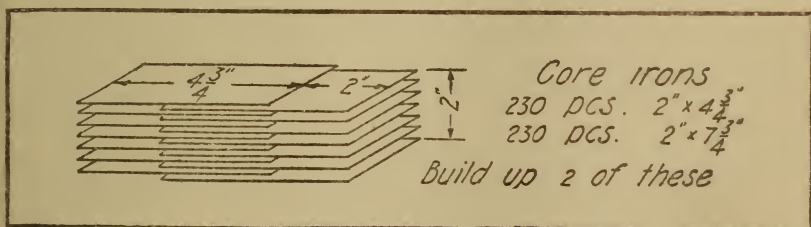 4 3/4" 2" 2"
Core irons
230 pcs. 2" x 4 3/4"
230 pcs. 2" x 7 3/4"
Build up 2 of these